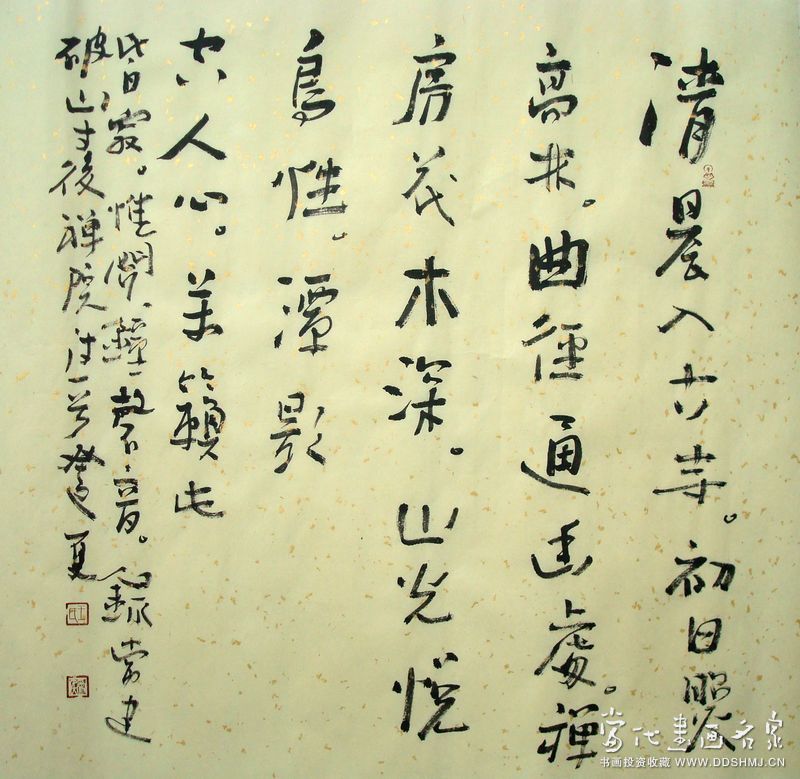 清晨入古寺。初日照
高林。曲徑通幽處。禅
房花木深。山光悦
鳥性。潭影
空人心。萬籟此
皆寂。惟聞鐘磬音。錄常建
破山寺後禅院诗一首 夏
當代書画名家
书画投资收藏 WWW.DDSHMJ.CN